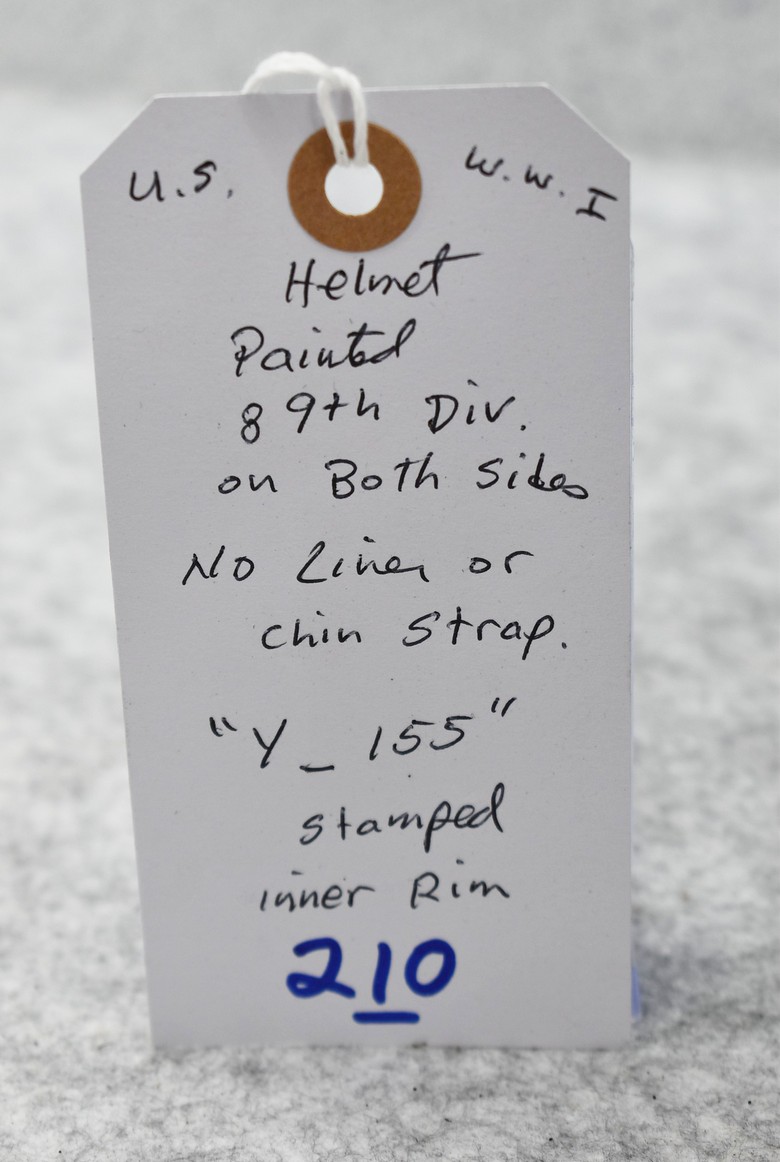 U.S. W.W. I
Helmet
Painted
89th Div.
on Both Sides
No Liner or
chin Strap.
"Y_155"
stamped
inner Rim
210